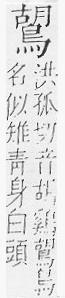 鶘
洪孤切音胡雞鶘鳥
名似雉青身白頭